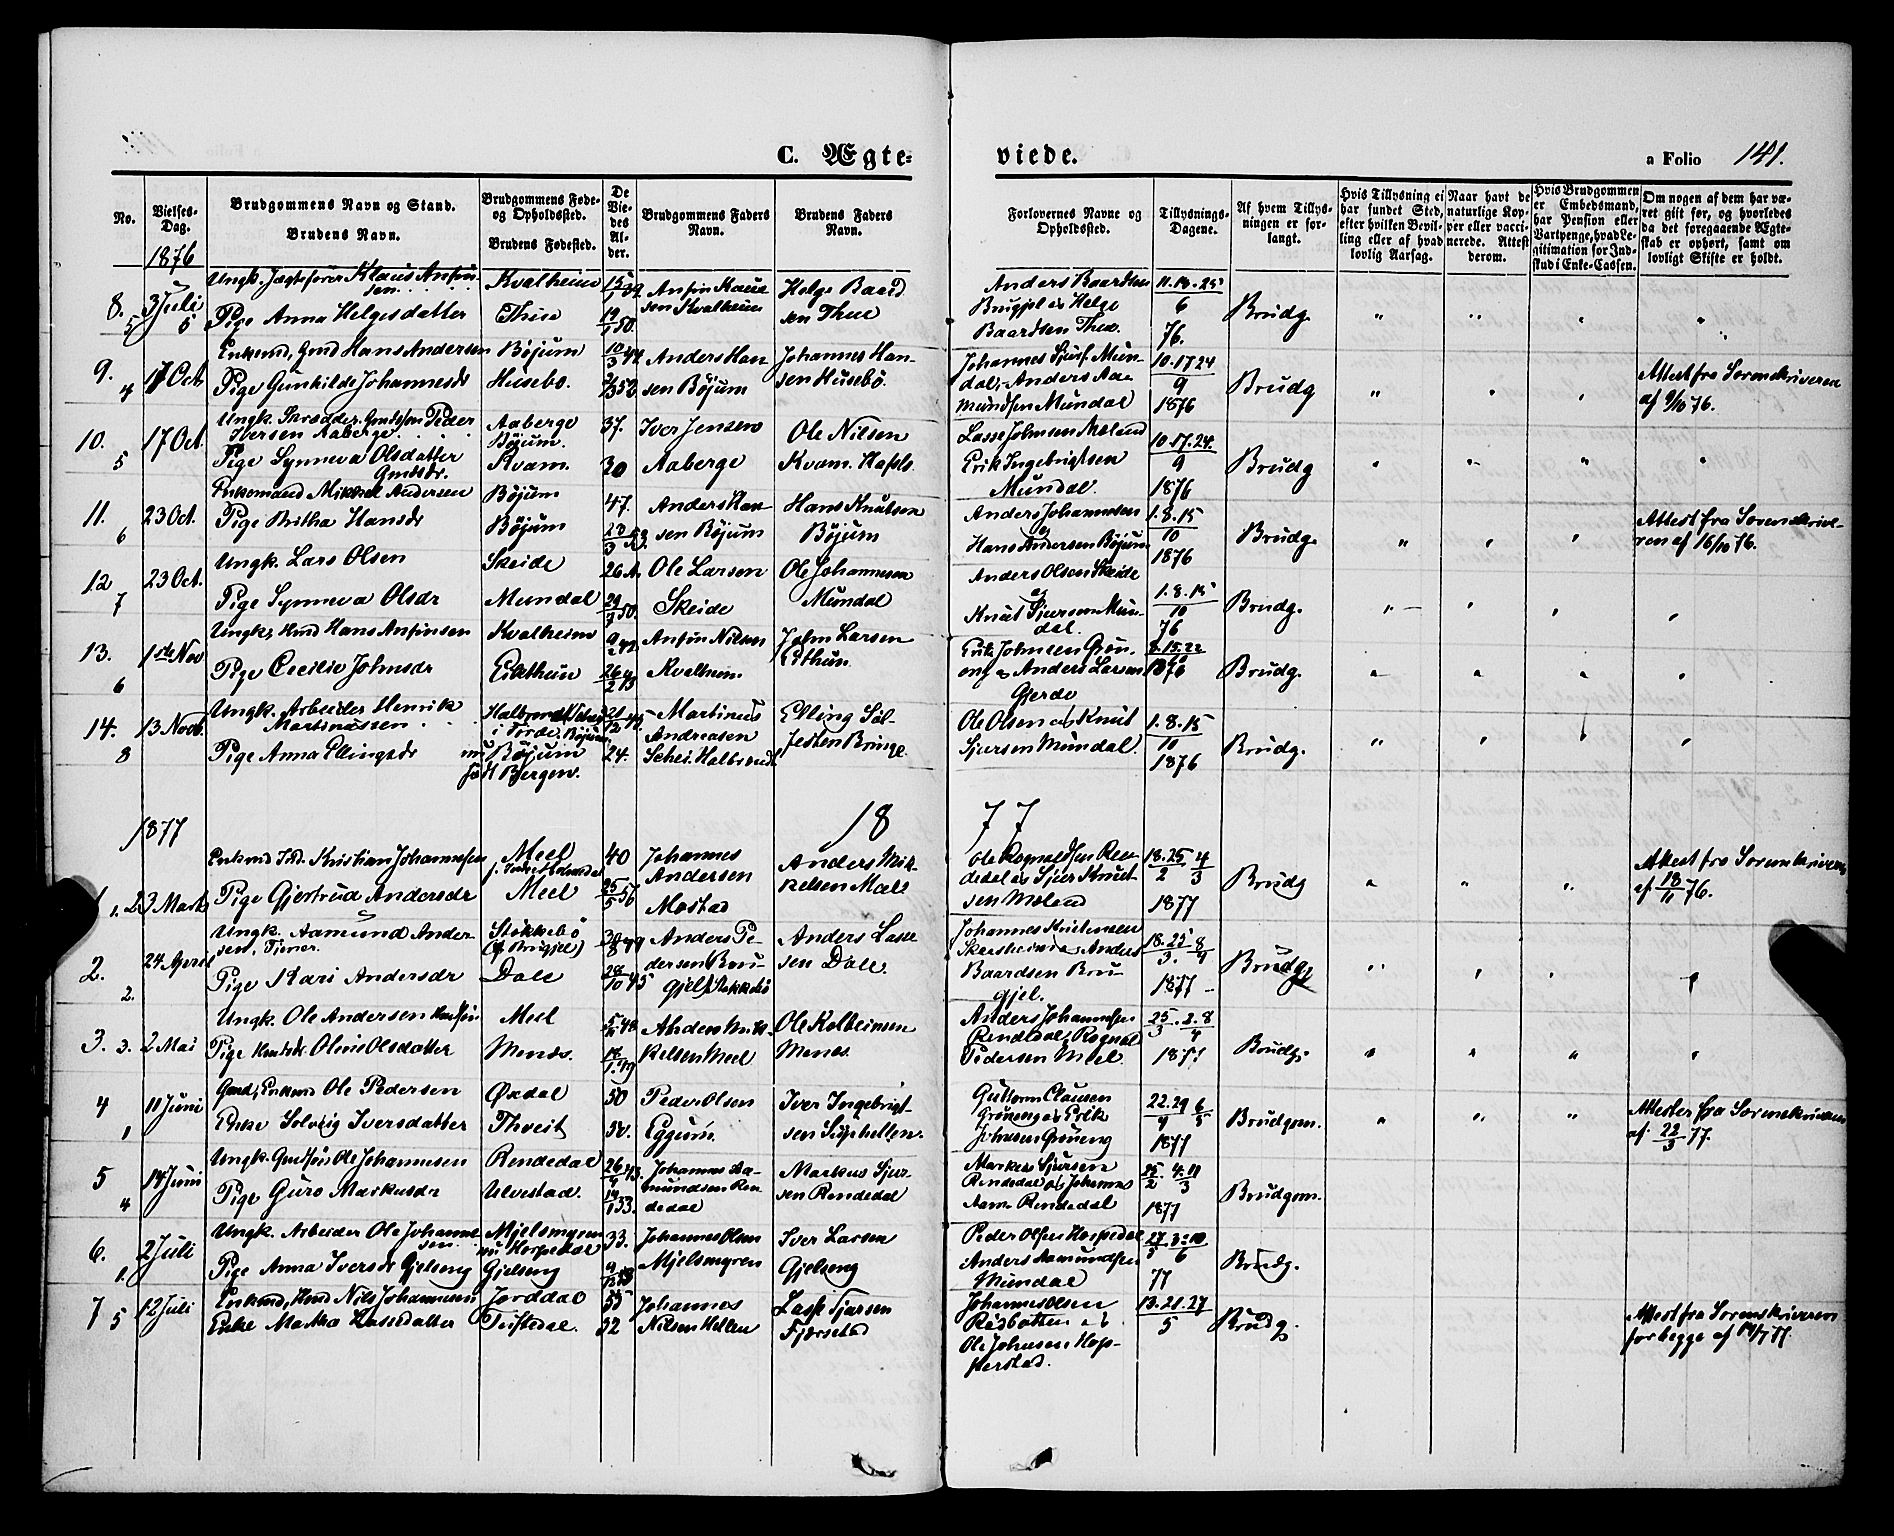 C. Ægte=
viede.
a Folio 141.
No.
Vielses-Dag.
Brudgommens Navn og Stand.
Brudens Navn.
Brudgommens Føde- og Opholdssted.
Brudens Fødested.
De Viedes Alder.
Brudgommens Faders Navn.
Brudens Faders Navn.
Forlovernes Navne og Opholdssted.
Tillysnings-Dagene.
Af hvem Tillysningen er forlangt.
Hvis Tillysning ei har fundet Sted, efter hvilken Bevilling eller af hvad lovlig Aarsag.
Naar havt de naturlige Kopper eller vaccinerede. Attest derom.
Hvis Brudgommen er Embedsmand, har Pension eller Vartpenge, hvad Legitimation for Indskud i Enke-Cassen.
Om nogen af dem har været gift før, og hvorledes da det foregaaende Ægteskab er ophørt, samt om lovligt Skifte er holdt.
1876
8. 5 3 Juli
Ungk. Jægtefører Klaus Ansfinsen
Kvalheim
Helge Baardsen Thue
Anders Baardsen Brugjel og Helge Baardsen Thue.
11. 18. 25 6 76.
Brudg
Pige Anna Helgesdatter
9. 4 17 Oct
Enkemd, Gmd Hans Andersen
Bøjum
Anders Hansen Bøjum
Johannes Hansen Husebø
Johannes Sjurs. Mundal, Anders Aamundsen Mundal
10. 17 24 9 1876
Brudg
Attest fra Sorenskriveren af 9/10 76.
Pige Gunhilde Johannesdr
Husebø.
10. 5 17 Oct
Ungk. Skrædder, Gmdsøn Peder Iversen Aaberge
Aaberge Bøjum.
37.
Iver Jensen Aaberge
Ole Nilsen Kvam. Hafslo
Lasse Johnsen Moland Erik Ingebrigtsen Mundal.
10. 17. 24. 9 1876
Brudg
Pige Synneva Olsdatter Gmdsdr.
Kvam.
30
11. 6 23 Oct.
Enkemand Mikkel Andersen
Bøjum
47.
Anders Hansen Bøjum
Hans Knutsen Bøjum
Anders Johannesen og Hans Andersen Bøjum
1. 8. 15 10 1876
Brudg.
Attest fra Sorenskriveren af 16/10 76.
Pige Britha Hansdr
Bøjum
12 7 23 Oct.
Ungk. Lars Olsen
Skeide
26 A.
Ole Larsen Skeide
Ole Johannesen Mundal
Anders Olsen Skeide og Knut Sjursen Mundal.
1. 8. 15 10 76
Brudg.
Pige Synneva Olsdr
Mundal
13. 6 1ste Nov
Ungk, Kmd Hans Ansfinsen
Kvalheim
Ansfin Nilsen Kvalheim
John Larsen Eithun.
Erik Johnsen Grøneng og Anders Larsen Gjerde
8. 15. 22 1876
Brudg.
Pige Cecilie Johnsdr
Eithun
26/2 43
14. 8 13 Novb.
Ungk. Arbeider Henrik Martinussen
Martinus Andreasen Schei. Halbrend
Elling Sølfesten Bringe.
Ole Olsen og Knut Sjursen Mundal.
1. 8. 15 10 1876
Brudg.
Pige Anna Ellingsdr
nu Bøjum født Bergen.
24.
1877
18 77
1 1. 23 Marts
Enkemd Kristian Johannesen
Meel
40
Johannes Andersen Mostad
Anders Mikkelsen Mæl
Ole Rognaldsen Rendedal og Sjur Knutsen Moland
18. 25 2 4 3 1877
Brudg
Attest fra Sorenskriveren af 18/11 76.
Pige Gjertrud Andersdr
Meel
25/5 56
2. 2. 24 April
Ungk. Aamund Andersen, Tjener.
Stokkebø (f. Brugjel)
Anders Pedersen Brugjel f. Stokkebø
Anders Lassesen Dale.
Johannes Kristensen Skeisheim og Anders Baardsen Brugjel.
18. 25 3. 8 4 1877
Brudg
Pige Kari Andersdr
Dale
28/10 45
3. 3. 2 Mai
Ungk. Ole Andersen
Meel
Anders Mikkelsen Meel
Ole Kolbeinsen Menes
Anders Johannesen Rendedal, Rognal Pedersen Meel
25 3 . 2. 8 4 1877
Brudg.
Pige Kmdsdr Oline Olsdatter
Menes.
4 1 11 Juni
Gmd, Enkemd Ole Pedersen
Øxdal
50
Peder Olsen Eggum.
Iver Ingebrigtsen Suphellen.
Guttorm Clausen Grøneng og Erik Johnsen Grøneng
22. 29 4 6 5 1877
Brudgom.
Attester fra Sorenskriveren af 22/3 77.
Enke Solveig Iversdatter
Thveit
50.
5 4 14 Juni
Ungk. Gmdsøn Ole Johannesen
Rendedal
Johannes Aamundsen Rendedal
Markus Sjursen Rendedal
Markus Sjursen Rendedal og Johannes Aam. Rendedal
25 2. 4. 11 3 1877
Brudgom.
Pige Guro Markusdr
Ulvestad.
6. 1. 2 Juli
Ungk. Arbeider Ole Johannesen
Mjelsmyren nu Hopedal
33.
Johannes Olsen Mjelsmyren
Iver Larsen Gjelseng
Peder Olsen Hopedal Anders Aamundsen Mundal
27 5 3. 10 6 77
Brudg.
Pige Anna Iversdr Gjelseng
Gjelseng
7 5 12 Juli
Enkemd, Kmd Nils Johannesen
Jorddal
55
Johannes Nilsen Hellen
Lasse Sjursen Fjærestad
Johannes Olsen Risbotten og Ole Johnsen Hopperstad.
13. 21. 27 5
Brudg.
Attest fra Sorenskriveren for begge af 14/7 77.
Enke Martha Lassedatter
Teistedal.
52